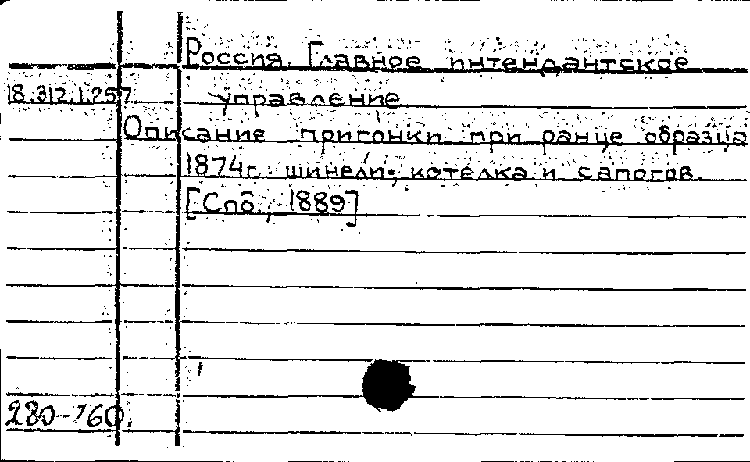 Россия. Главное интендантское
18.312.1.257 управление
Описание пригонки при ранце образца
1874г. шинели, котелка и сапогов.
[Спб., 1889]
280-760.